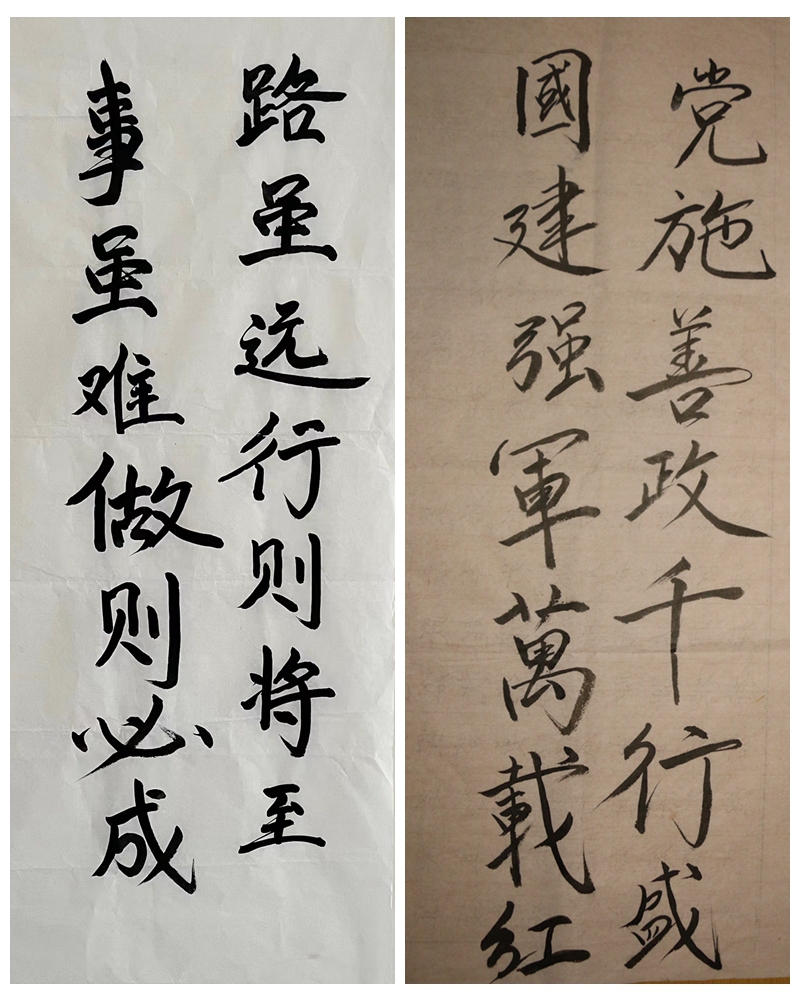 路虽远行则将至
事虽难做则必成
党施善政千行盛
國建强軍萬載紅